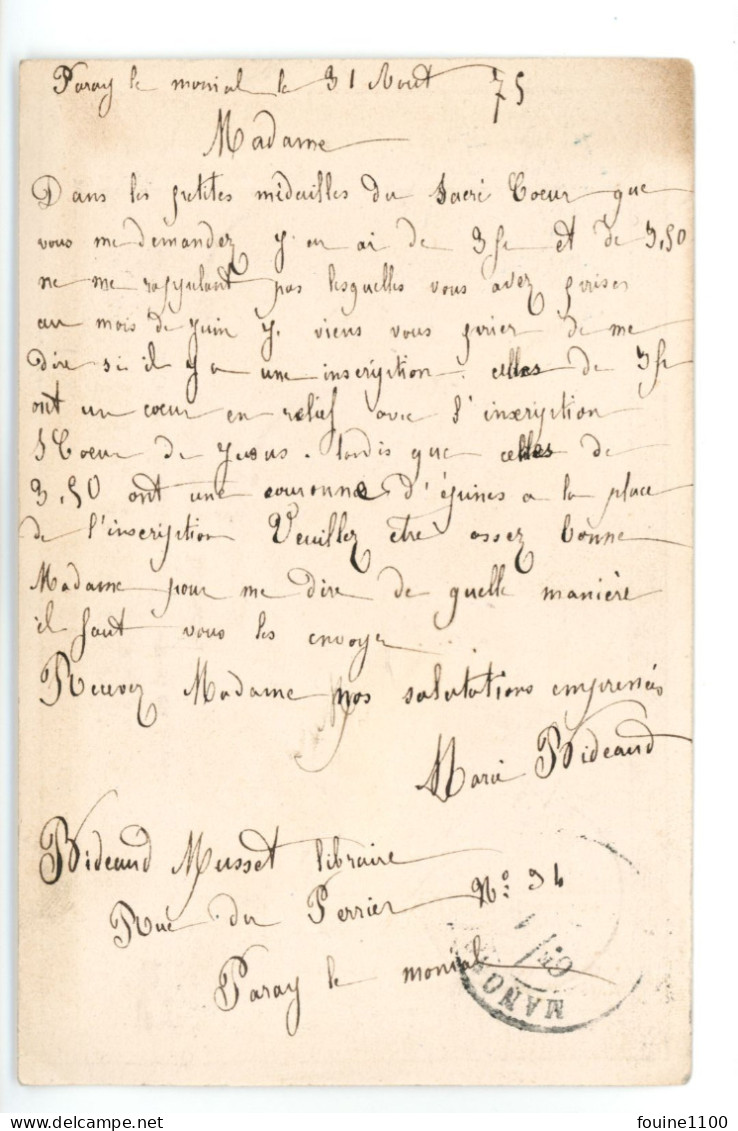 Paray le monial le 31 Aout 75
Madame
Dans les petites médailles du Sacré Coeur que
vous me demandez j'en ai de 3 fr et de 3,50
ne me rappelant pas lesquelles vous avez prises
au mois de Juin je viens vous prier de me
dire si il y a une inscription. celles de 3 fr
ont un coeur en relief avec l'inscription
S Coeur de Jesus. tandis que celles de
3,50 ont une couronne d'épines a la place
de l'inscription Veuillez être assez bonne
Madame pour me dire de quelle manière
il faut vous les envoyer
Recevez Madame nos salutations empressées
Marie Bideaud
Bideaud Musset libraire
Rue du Perrier No:
Paray le monial
MANO
fouine1100